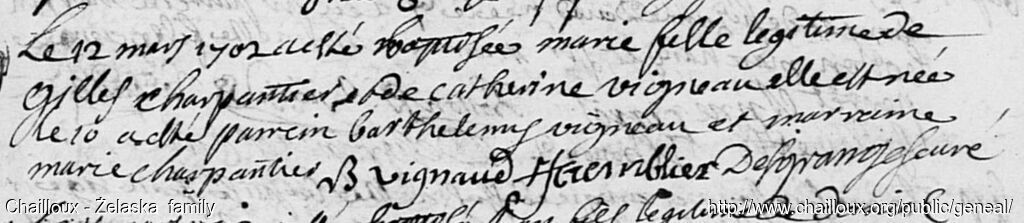 Le 12 mars 1702 a esté baptisée marie fille legitime de
Gilles charpantier et de catherine vigneau elle est née
le 10 a esté parrein barthelemy vigneau et marraine
marie charpantier B vignaud Desgranges curé
Chailloux - Żelaska family
http://www.chailloux.org/public/geneal/